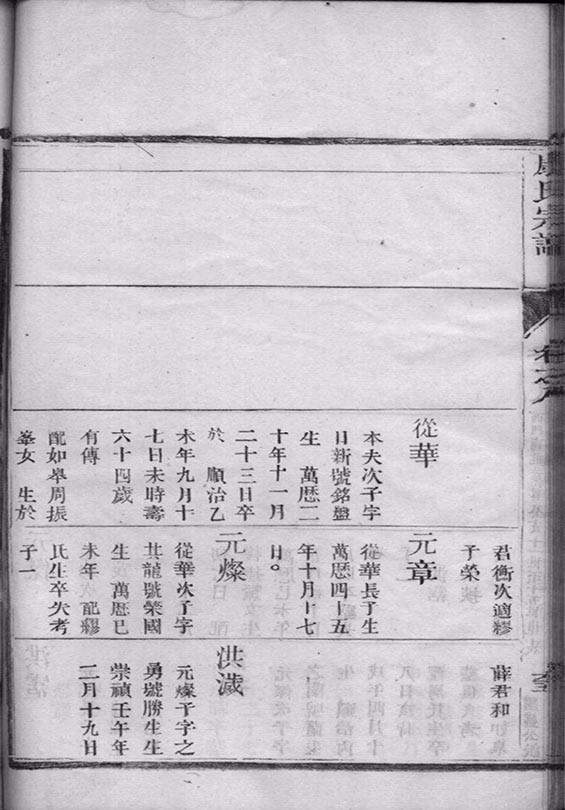 氏宗譜
卷之八
君衡次適繆
子榮掞
薛君和
從華
本夫次子字
日新號銘盤
生 萬曆二
十年十一月
二十三日卒
於 順治乙
未年九月十
七日未時壽
六十四歲
有傳
配如皋周振
峯女 生於
元章
從華長子生
萬曆四十五
年十月十七
日。
元燦
從華次子字
其龍號榮國
生 萬曆巳
未年 配繆
氏生卒失考
子一
洪濊
元燦子字之
勇號勝生生
崇禎壬午年
二月十九日